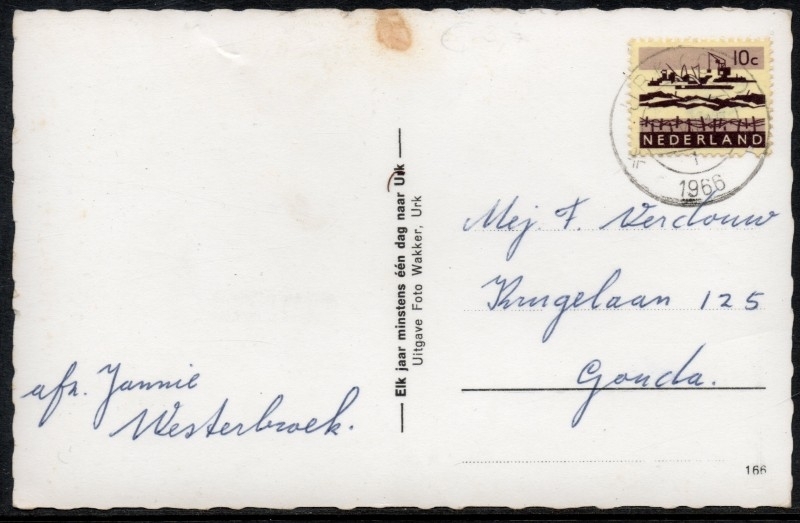 10c
NEDERLAND
1966
Elk jaar minstens één dag naar Urk
Uitgave Foto Wakker, Urk
Mej. F. Verdouw
Krugelaan 125
Gouda.
afz. Jannie
Westerbroek.
166